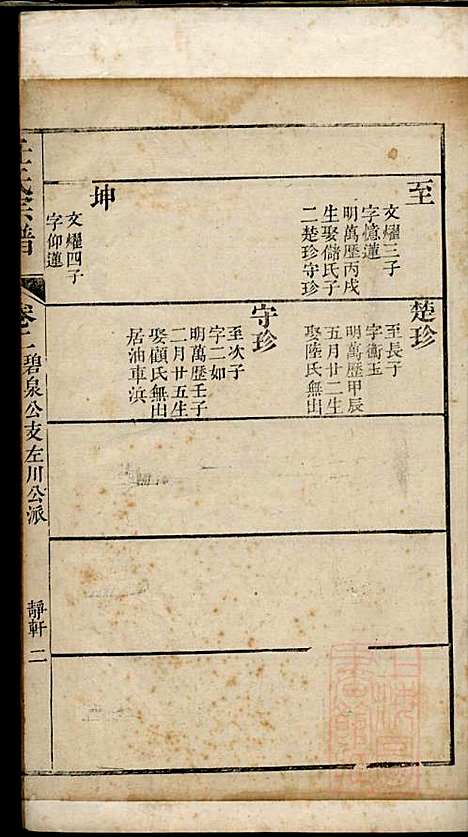 至
文燿三子
字憶蓮
明萬歷丙戌
生娶儲氏子
二楚珍守珍
坤
文燿四子
字仰蓮
楚珍
至長子
字衡玉
明萬歷甲辰
五月廿二生
娶陸氏無出
守珍
至次子
字二如
明萬歷壬子
二月廿五生
娶顧氏無出
居油車浜
氏宗譜
卷二 碧泉公支左川公派
靜軒 二